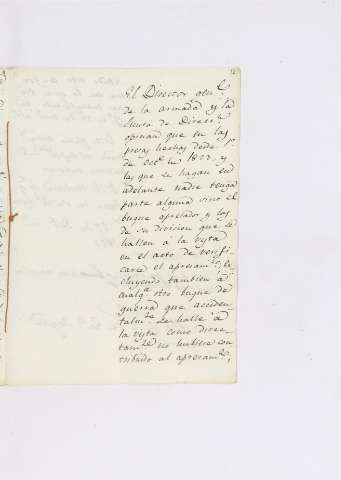 12
El Director gen.l
de la armada y la
Junta de Direc.n
opinan que en las
presas hechas desde 1.o
de oct.e de 1823, y
las que se hagan en
adelante nadie tenga
parte alguna sino el
buque apresador y los
de su division que se
hallen á la vista
en el acto de verifi
carse el apresam.to, ex
cluyendo tambien á
cualq.a otro buque de
guerra que acciden
talm.te se halle á
la vista como direc
tam.te no hubiere con
tribuido al apresam.to